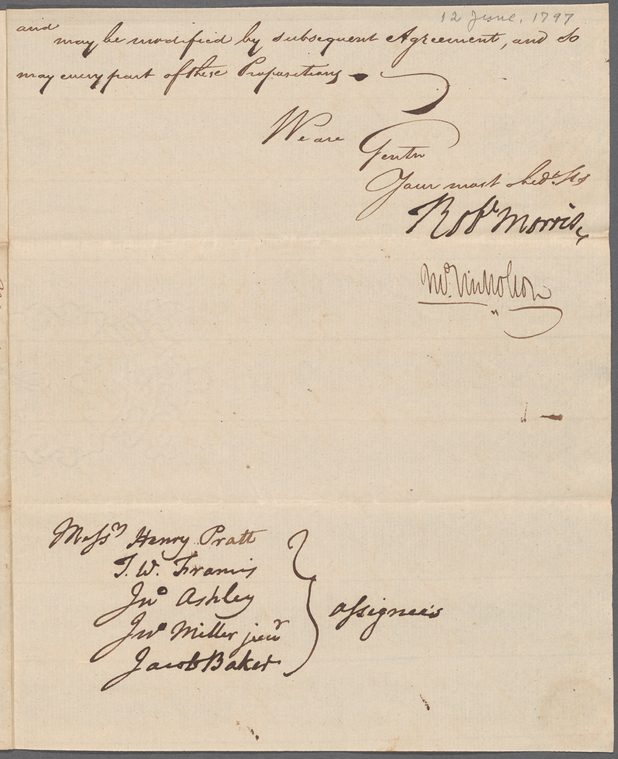 12 June, 1797
and
may be modified by subsequent Agreement, and so
may every part of these Propositions
We are
Gentn
Your most obedt. Sts
Robt Morris
Jno. Nicholson
Messrs Henry Pratt
T. W. Francis
Jno Ashley
Jno Miller junr
Jacob Baker
assignees